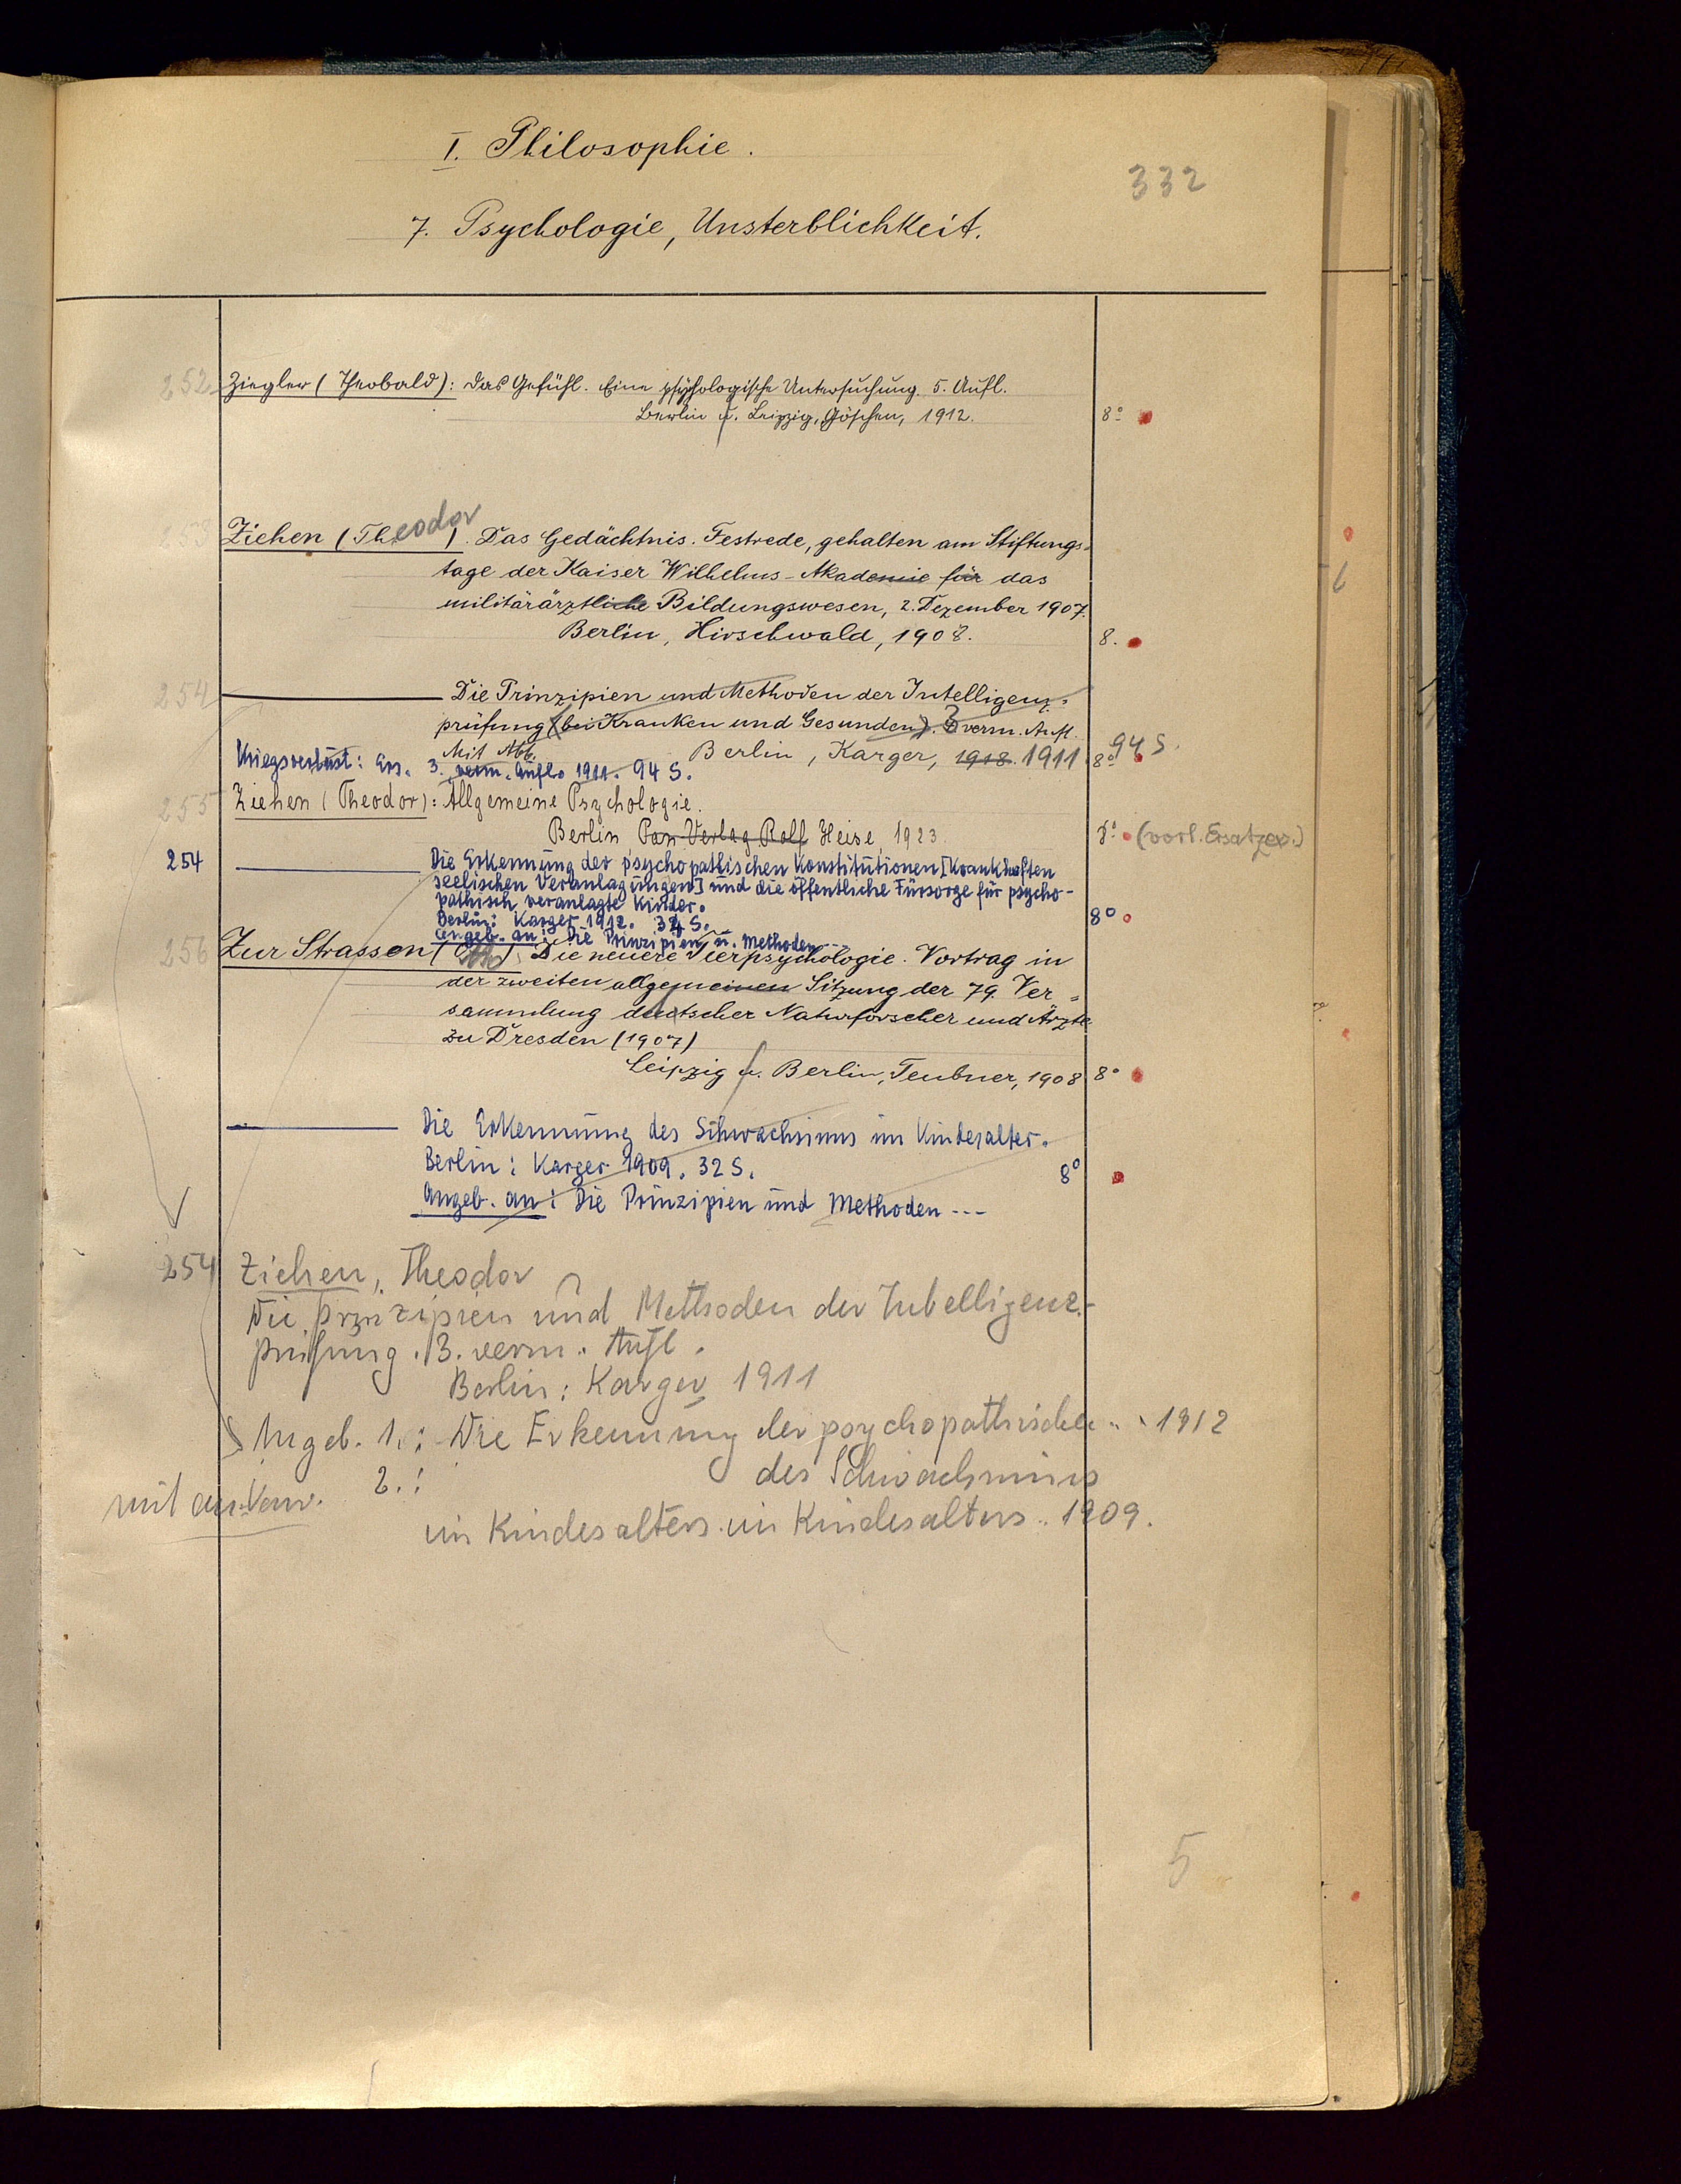 I. Philosophie.
332
7. Psychologie, Unsterblichkeit.
252 Ziegler (Theobald): Das Gefühl. Eine psychologische Untersuchung. 5. Aufl.
Berlin u. Leipzig, Göschen, 1912. 8°
253 Ziehen (Theodor). Das Gedächtnis. Festrede, gehalten am Stiftungs=
tage der Kaiser Wilhelms-Akademie für das
militärärztliche Bildungswesen, 2. Dezember 1907.
Berlin, Hirschwald, 1908. 8.
254 Die Prinzipien und Methoden der Intelligenz=
prüfung (bei Kranken und Gesunden). 3 verm. Aufl.
Mit Abb. Berlin, Karger, 1918. 1911 8° 94 S.
Kriegsverlust: Ers. 3. verm. Aufl. 1911. 94 S.
255 Ziehen (Theodor): Allgemeine Psychologie.
Berlin Pan-Verlag Rolf Heise, 1923 8° (vorl. Ersatzex.)
254 Die Erkennung der psychopathischen Konstitutionen [Krankhaften
seelischen Veranlagungen] und die öffentliche Fürsorge für psycho-
pathisch veranlagte Kinder.
Berlin: Karger 1912. 34 S. 8°
Angeb. an: Die Prinzipien u. Methoden...
256 Zur Strassen (Otto) Die neuere Tierpsychologie. Vortrag in
der zweiten allgemeinen Sitzung der 79. Ver=
sammlung deutscher Naturforscher und Ärzte
zu Dresden (1907)
Leipzig u. Berlin, Teubner, 1908 8°
Die Erkennung des Schwachsinns im Kindesalter.
Berlin: Karger 1909. 32 S. 8°
Angeb. an: Die Prinzipien und Methoden ---
254 Ziehen, Theodor
Die Prinzipien und Methoden der Intelligenz-
prüfung. 3. verm. Aufl.
Berlin: Karger 1911
Angeb. 1.: Die Erkennung der psychopathischen .. 1912
2.: des Schwachsinns
mit an. Verw.
im Kindesalters im Kindesalters .. 1909.
5